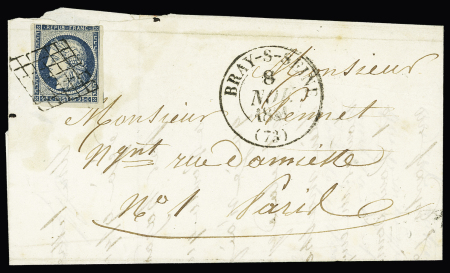 REPUB. FRANC.
BRAY-S-SEINE
8
NOV.
(73)
Monsieur
Monsieur Mennet
Ngnt rue damiette
No 1 Paris